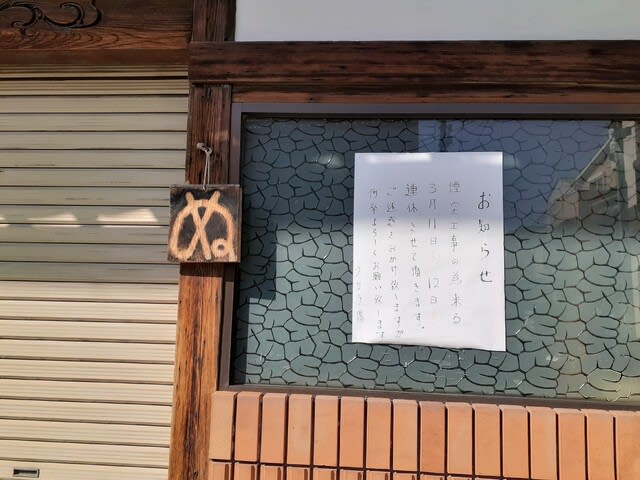 ぬ
お知らせ
煙突工事の為来る
3月11日 12日
連休させて頂きます。
ご迷惑をおかけ致しますが
何卒よろしくお願い致します